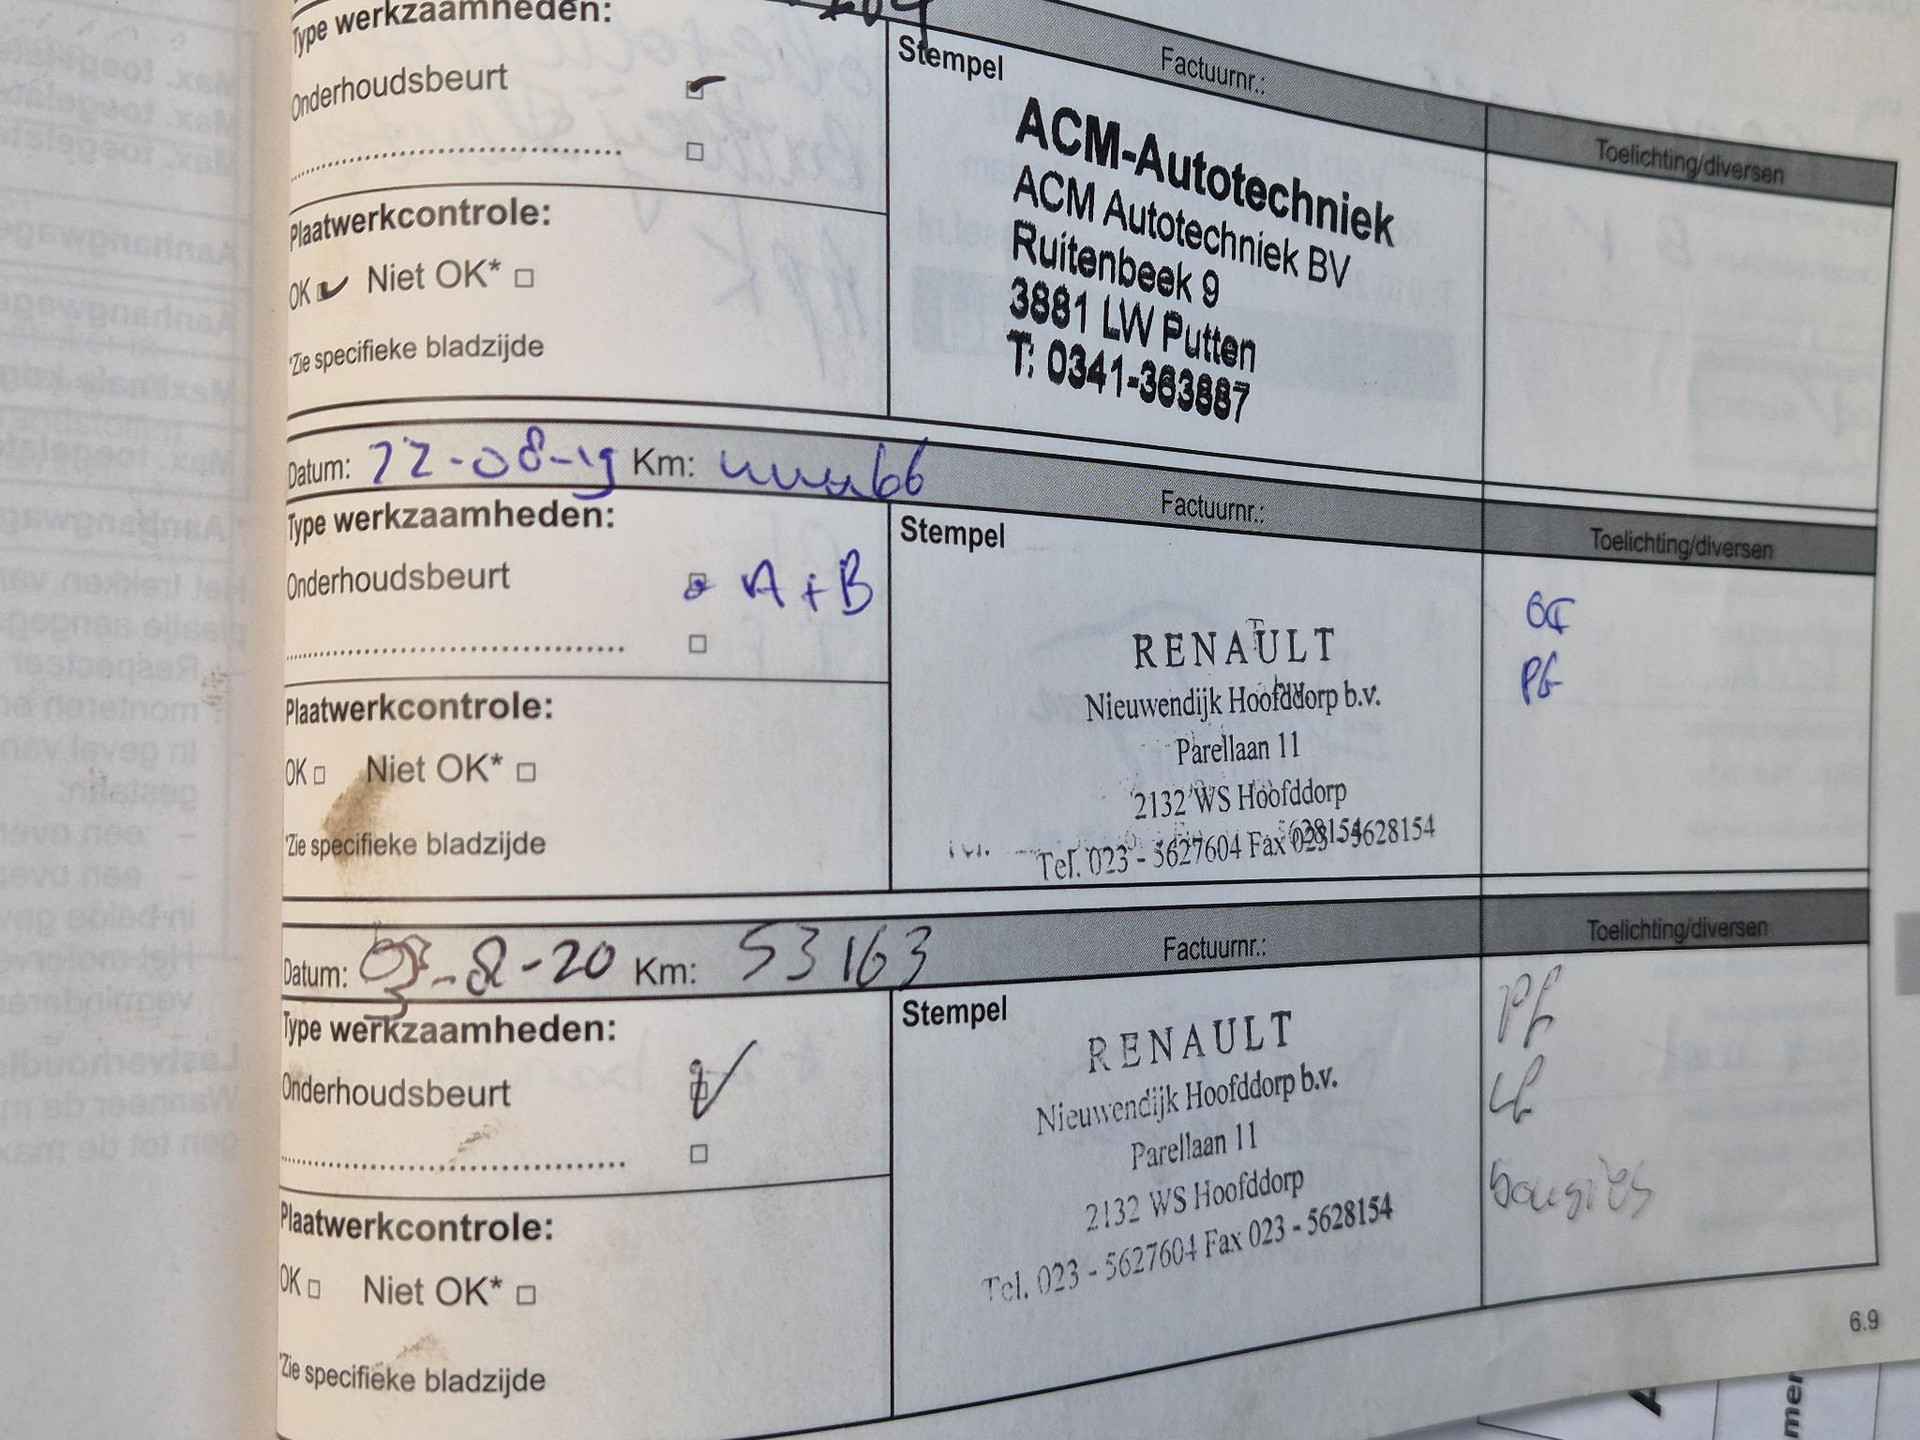 Type werkzaamheden:
Onderhoudsbeurt
Plaatwerkcontrole:
OK Niet OK*
*Zie specifieke bladzijde
Stempel
Factuurnr.:
ACM-Autotechniek
ACM Autotechniek BV
Ruitenbeek 9
3881 LW Putten
T: 0341-363887
Toelichting/diversen
Datum: 22-08-19 Km:
Factuurnr.:
Type werkzaamheden:
Onderhoudsbeurt A+B
Plaatwerkcontrole:
OK Niet OK*
*Zie specifieke bladzijde
Stempel
RENAULT
Nieuwendijk Hoofddorp b.v.
Parellaan 11
2132 WS Hoofddorp
Tel. 023 - 5627604 Fax 023 - 5628154
Toelichting/diversen
PF
Datum: 03-8-20 Km: 53163
Factuurnr.:
Type werkzaamheden:
Onderhoudsbeurt
Plaatwerkcontrole:
OK Niet OK*
*Zie specifieke bladzijde
Stempel
RENAULT
Nieuwendijk Hoofddorp b.v.
Parellaan 11
2132 WS Hoofddorp
Tel. 023 - 5627604 Fax 023 - 5628154
Toelichting/diversen
PF
LF
Bougies
6.9